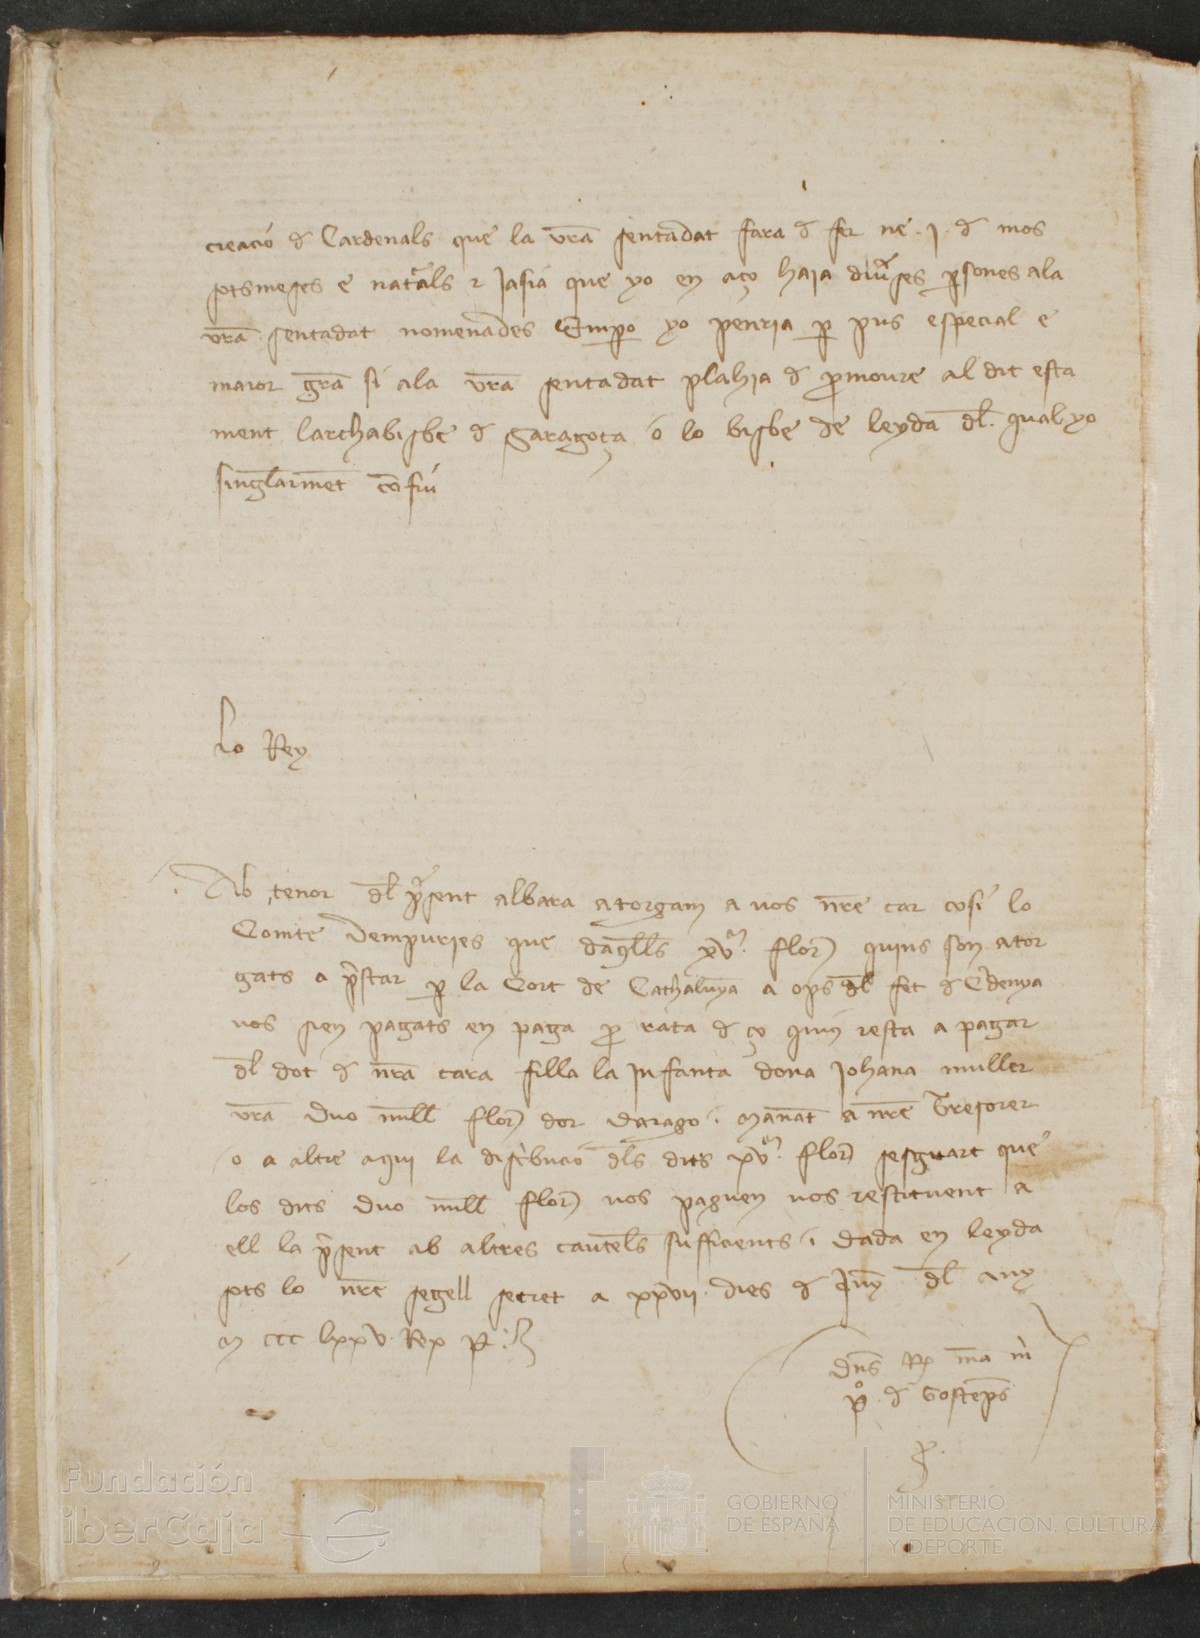 creacio d Cardenals que la vra sentadat fara d fer ne .j. d mos
sotsmeses e naturals z jasia que yo en aço haia diuses psones ala
vra sentadat nomenades Empo yo penria p pus especial e
maior gra si ala vra sentadat plahia d pmoure al dit esta
ment larchabisbe d Saragoça o lo bisbe de leyda dl qual yo
singlarmet confiu
Lo Rey
Ab tenor dl psent albara atorgam a vos nre car cosi lo
Comte Dempuries que daqlls xvm flor quins son ator
gats a pstar p la Cort de Cathalunya a ops dl fet d Cdenya
vos sien pagats en paga p rata d ço quius resta a pagar
dl dot d nra cara filla la Infanta dona Johana muller
vra Duo mill flor dor Darago . manat a nre Tresorer
o a altre aqui la distbucio dls dits xvm flor sesguart que
los dits Duo mill flor vos paguen vos restituent a
ell la psent ab altres cauteles sufficients . Dada en leyda
sots lo nre segell secret a xxvii dies d Juny dl any
M ccc lxxv. Rex P.
Dns Rx ma m
po d Gosteps
Fundación
iberCaja
GOBIERNO
DE ESPAÑA
MINISTERIO
DE EDUCACIÓN, CULTURA
Y DEPORTE